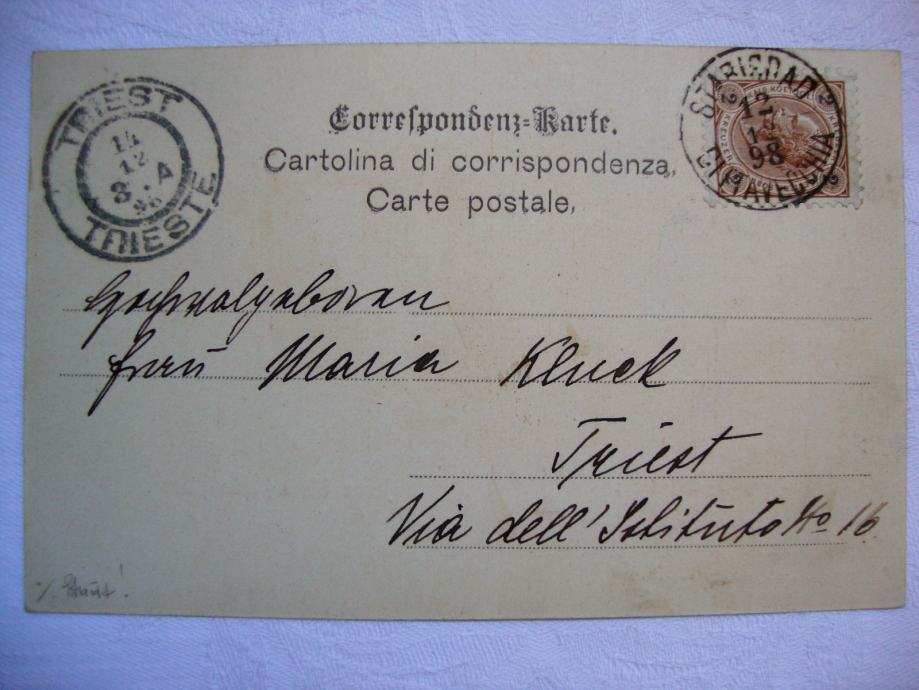 Correspondenz-Karte.
Cartolina di corrispondenza,
Carte postale,
TRIEST
14
12
8 . A
98
TRIESTE
STARIGRAD
12
12
98
CITTAVECCHIA
Hochwolgeboren
Frau Maria Kluck
Triest
Via dell'Istituto No 16